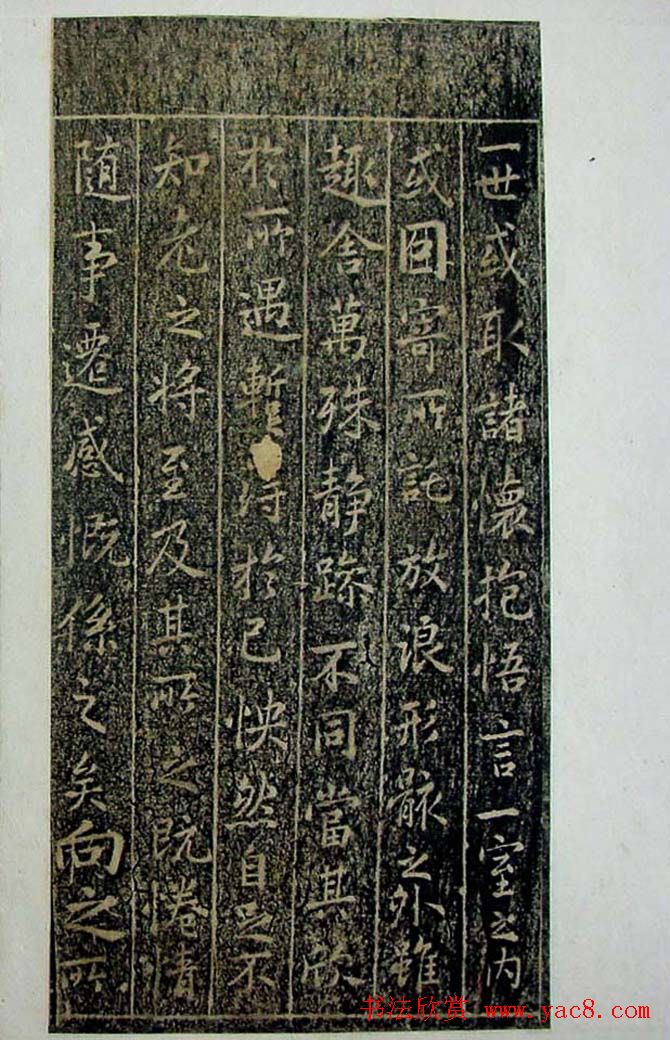 一世或取諸懷抱悟言一室之内
或因寄所託放浪形骸之外雖
趣舍萬殊静躁不同當其欣
於所遇暫得於己怏然自足不
知老之将至及其所之既惓情
随事遷感慨係之矣向之所
书法欣赏 www.yac8.com